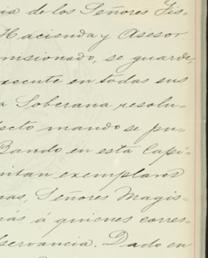 ia de los Señores Fis-
Hacienda y Asesor
misionado, se guarde,
xecute en todas sus
a Soberana resolu-
ecto mando se pu-
Bando en esta Capi-
mitan exemplares
sas, Señores Magis-
ás á quienes corres-
servancia. Dado en